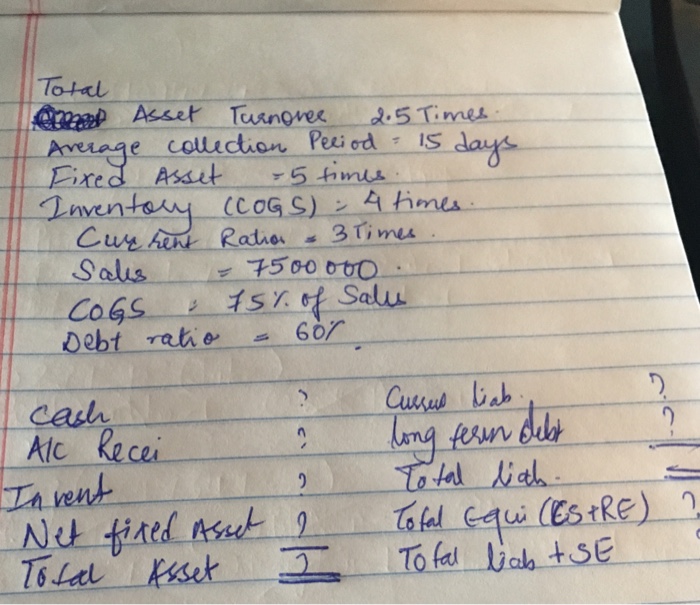 Total
Asset Turnover 2.5 Times.
Average collection Period = 15 days
Fixed Asset = 5 times.
Inventory (COGS) = 4 times.
Current Ratio = 3 Times.
Sales = 7500000.
COGS = 75% of Sales
Debt ratio = 60%.
Cash ? Current liab. ?
A/C Recei ? long term debt ?
Invent ? Total liab.
Net fixed Asset ? Total Equi (CS+RE) ?
Total Asset ? Total liab + SE